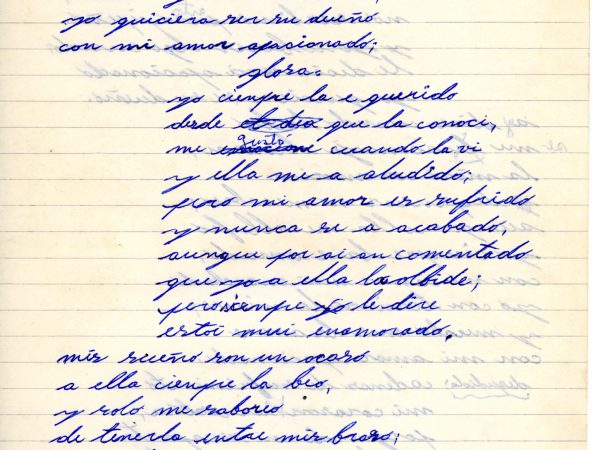 yo quiciera ser su dueño
con mi amor apacionado;
glosa:
yo cienpre la e querido
desde el dia que la conoci,
me emocioné gusto cuando la vi
y ella me a aludido;
pero mi amor es sufrido
y nunca se a acabado,
aunque por ai an comentado
que yo a ella la olbide;
pero sienpre yo le dire
estoi mui enamorado.
mis sueño son un ocaso
a ella cienpre la beo,
y solo me saboreo
de tenerla entre mis braso;